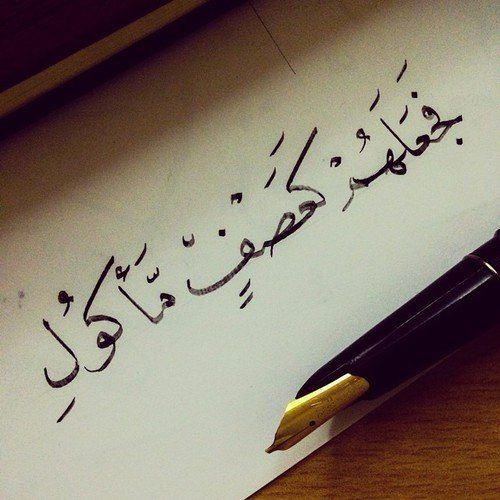 فَجَعَلَهُمْ كَعَصْفٍ مَّأْكُولِ